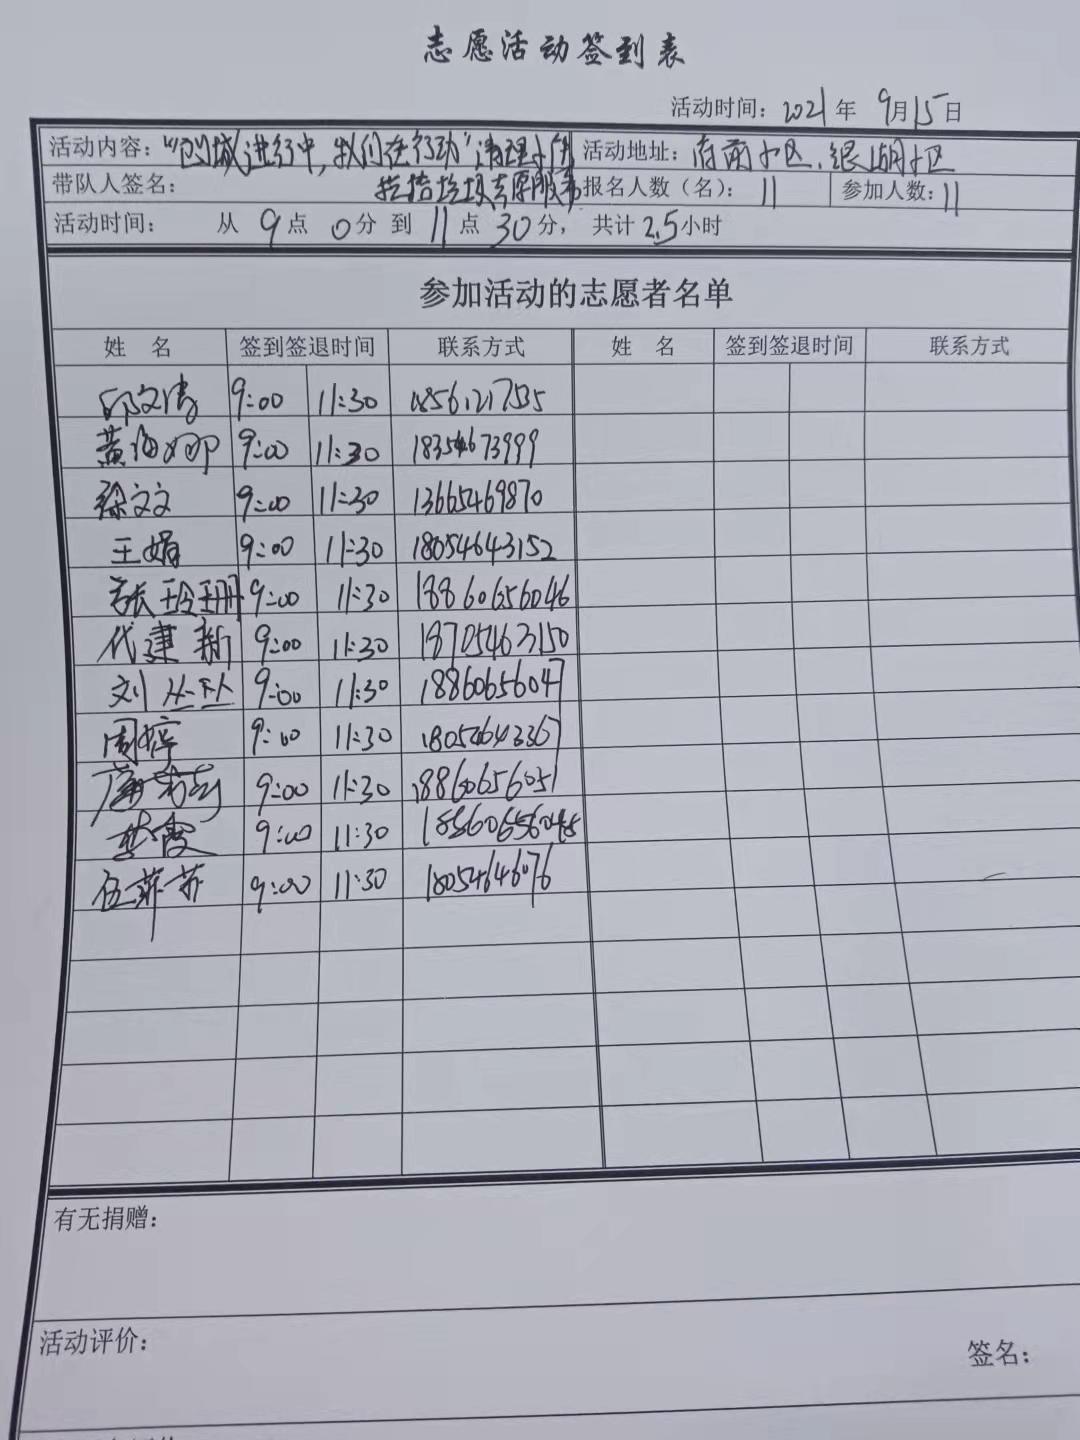 志愿活动签到表
活动时间：2021年 9月15日
活动内容："创城进行中，我们在行动"清理小广 活动地址：府前小区、银湖小区
带队人签名： 捡拾垃圾志愿服务 报名人数（名）：11 参加人数：11
活动时间： 从 9点 0分 到 11点 30分， 共计2.5小时
参加活动的志愿者名单
姓 名 签到签退时间 联系方式 姓 名 签到签退时间 联系方式
邱文清 9:00 11:30 18561217535
黄海娜 9:00 11:30 18354673999
徐文文 9:00 11:30 13665469870
王娟 9:00 11:30 18054643152
张玲珊 9:00 11:30 18860656046
代建新 9:00 11:30 18705463150
刘丛丛 9:00 11:30 18860656047
周婷 9:00 11:30 18054643367
9:00 11:30 18860656051
李霞 9:00 11:30
伍菲菲 9:00 11:30 18054646076
有无捐赠：
活动评价：
签名：